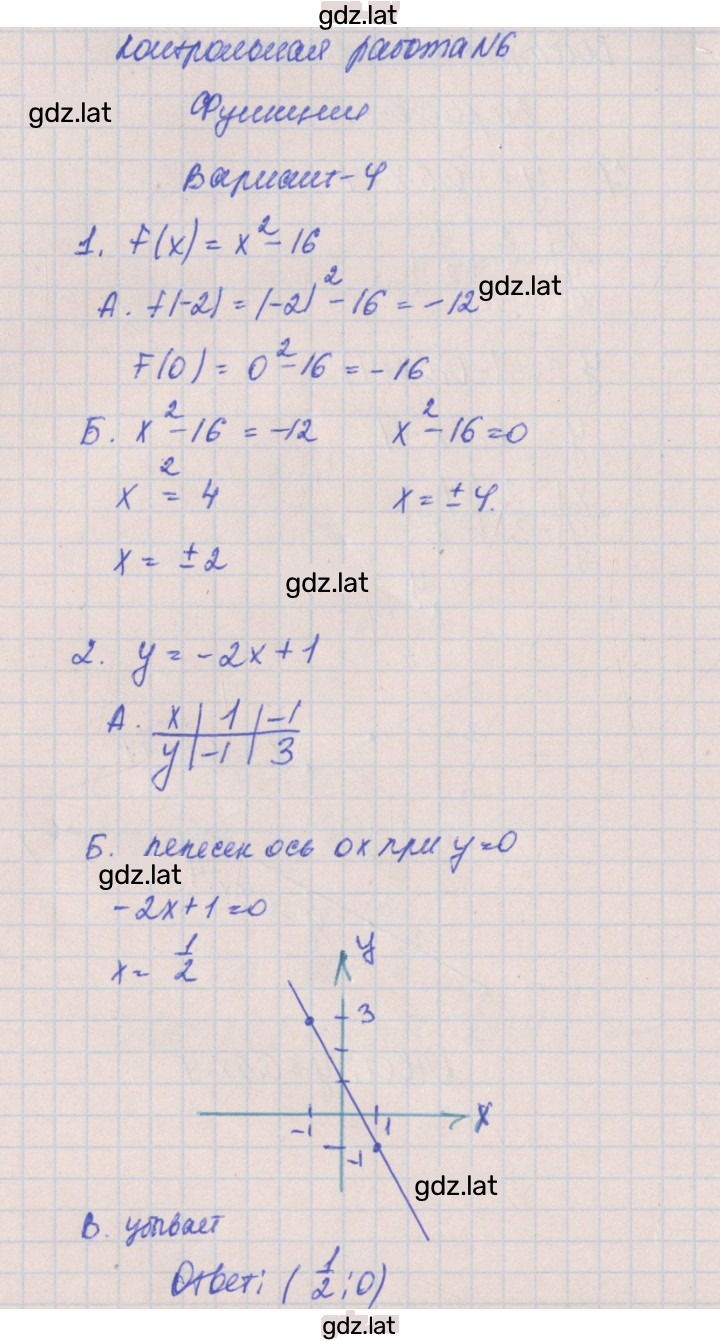 gdz.lat
Контрольная работа №6
gdz.lat
Функции
Вариант-4
1. F(x) = x² - 16
gdz.lat
А. f(-2) = (-2)² - 16 = -12
F(0) = 0² - 16 = -16
Б. x² - 16 = -12    x² - 16 = 0
x² = 4    x = ± 4.
x = ± 2
gdz.lat
2. y = -2x + 1
А. x | 1 | -1
y | -1 | 3
Б. пересек ось ox при y=0
gdz.lat
-2x + 1 = 0
x = 1/2
y
3
-1 1 x
-1
gdz.lat
В. убывает
Ответ: (1/2; 0)
gdz.lat